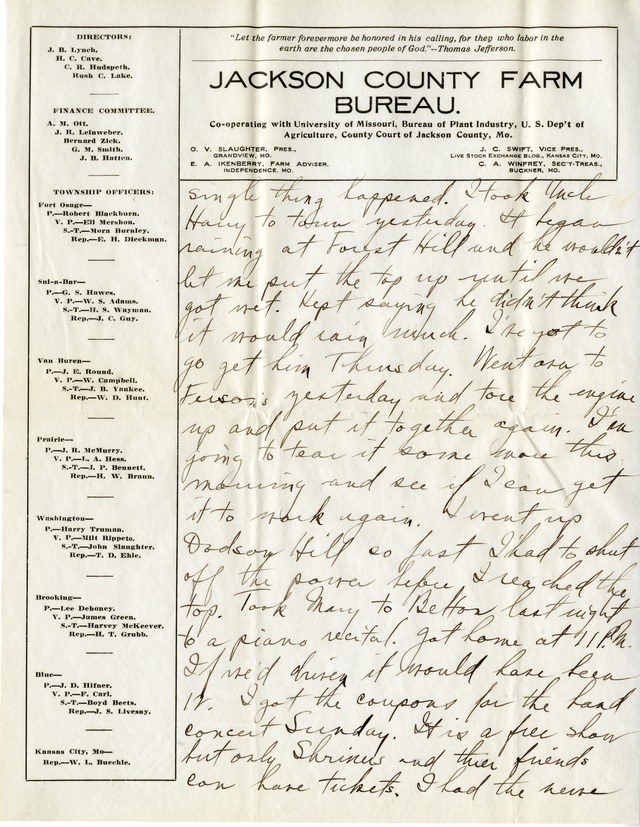 DIRECTORS:
J. B. Lynch,
H. C. Cave,
C. R. Hudspeth,
Rush C. Lake.
FINANCE COMMITTEE.
A. M. Ott,
J. R. Leinweber,
Bernard Zick,
G. M. Smith,
J. B. Hatten.
TOWNSHIP OFFICERS:
Fort Osage—
P.—Robert Blackburn.
V. P.—Eli Mershon.
S.-T.—Mora Burnley.
Rep.—E. H. Dieckman.
Sni-a-Bar—
P.—G. S. Hawes.
V. P.—W. S. Adams.
S.-T.—H. S. Wayman.
Rep.—J. C. Guy.
Van Buren—
P.—J. E. Round.
V. P.—W. Campbell.
S.-T.—J. B. Yankee.
Rep.—W. D. Hunt.
Prairie—
P.—J. R. McMurry.
V. P.—L. A. Hess.
S.-T.—J. P. Bennett.
Rep.—H. W. Braun.
Washington—
P.—Harry Truman.
V. P.—Milt Rippeto.
S.-T.—John Slaughter.
Rep.—T. D. Ehle.
Brooking—
P.—Lee Dehoney.
V. P.—James Green.
S.-T.—Harvey McKeever.
Rep.—H. T. Grubb.
Blue—
P.—J. D. Hifner.
V. P.—F. Carl.
S.-T.—Boyd Beets.
Rep.—J. S. Livesay.
Kansas City, Mo—
Rep.—W. L. Buechle.
"Let the farmer forevermore be honored in his calling, for they who labor in the
earth are the chosen people of God."—Thomas Jefferson.
JACKSON COUNTY FARM
BUREAU.
Co-operating with University of Missouri, Bureau of Plant Industry, U. S. Dep't of
Agriculture, County Court of Jackson County, Mo.
O. V. SLAUGHTER, PRES.,
GRANDVIEW, MO.
E. A. IKENBERRY, FARM ADVISER,
INDEPENDENCE, MO.
J. C. SWIFT, VICE PRES.,
LIVE STOCK EXCHANGE BLDG., KANSAS CITY, MO.
C. A. WINFREY, SEC'Y-TREAS.,
BUCKNER, MO.
single thing happened. I took Uncle
Harry to town yesterday. It began
raining at Forest Hill and he wouldn't
let me put the top up until we
got wet. Kept saying he didn't think
it would rain much. I've got to
go get him Thursday. Went over to
Ferson's yesterday and tore the engine
up and put it together again. I'm
going to tear it some more this
morning and see if I can get
it to work again. I went up
Dodson Hill so fast I had to shut
off the power before I reached the
top. Took Mary to Belton last night
to a piano recital. got home at 11 P.M.
If we'd driven it would have been
12. I got the coupons for the band
concert Sunday. It is a free show
but only Shriners and their friends
can have tickets. I had the nerve